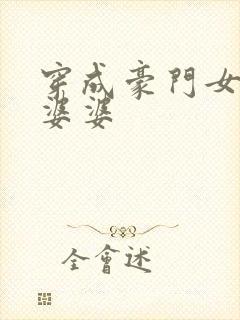 穿成豪門女
婆婆
全會述